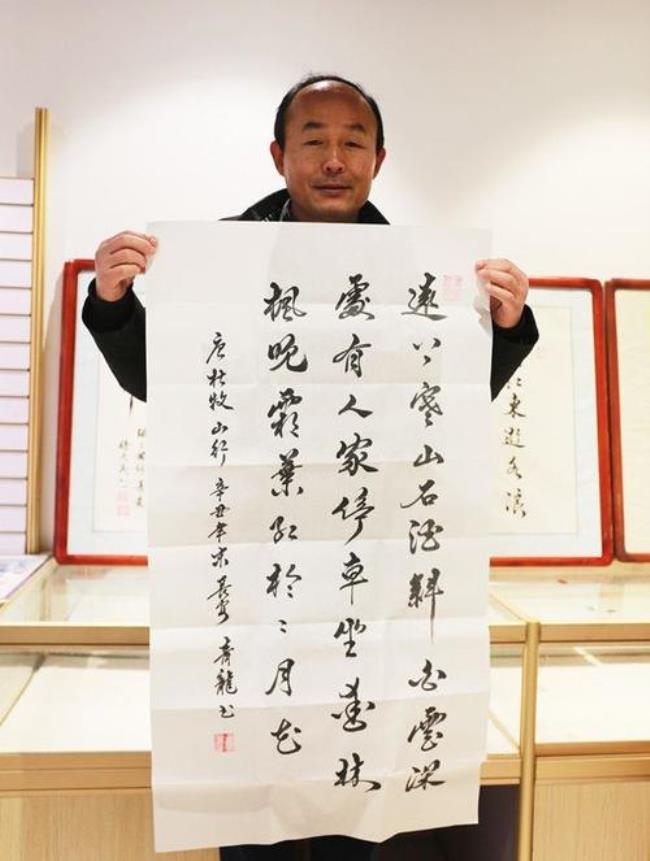 遠上寒山石徑斜白雲深
處有人家停車坐愛林
楓晚霜葉紅於二月花
唐杜牧山行 辛丑年末長安 青龍书
江東逝水浪